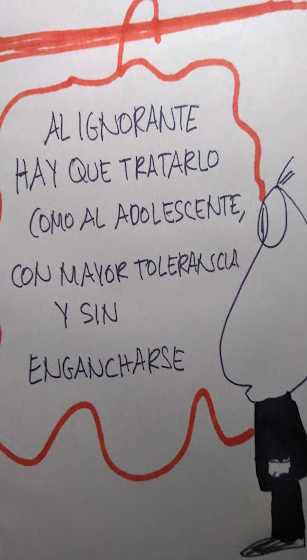 AL IGNORANTE
HAY QUE TRATARLO
COMO AL ADOLESCENTE,
CON MAYOR TOLERANCIA
Y SIN
ENGANCHARSE